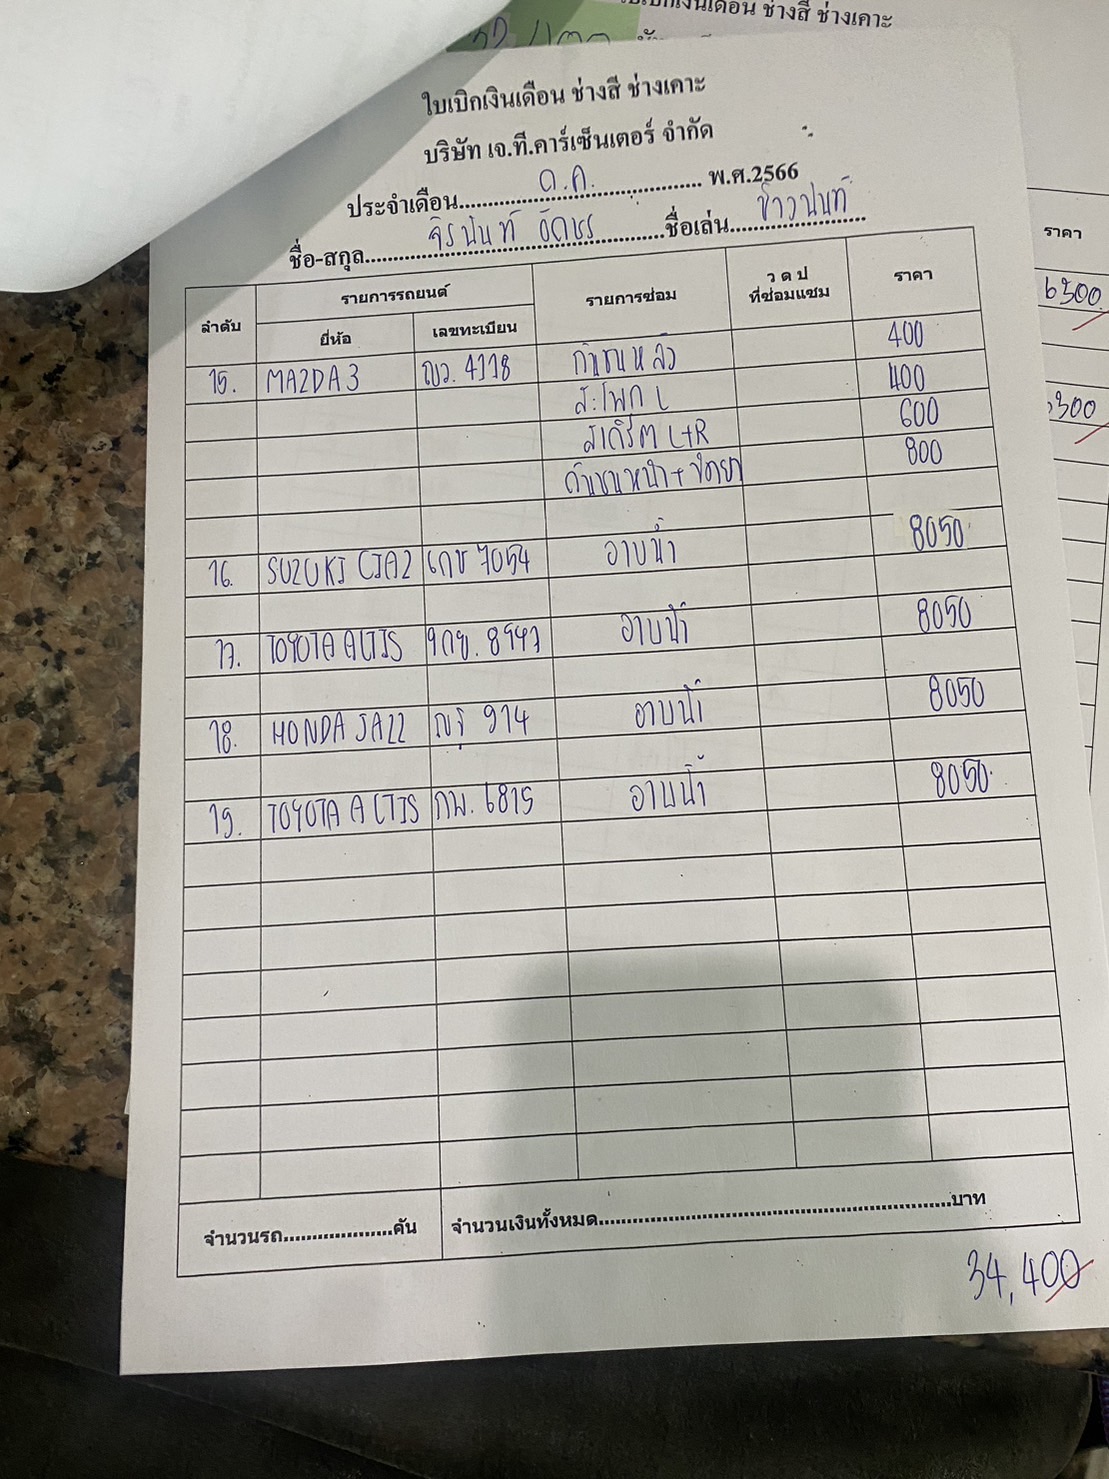 ช่างสี ช่างเคาะ
ใบเบิกเงินเดือน ช่างสี ช่างเคาะ
บริษัท เจ.ที.คาร์เซ็นเตอร์ จำกัด
ประจำเดือน ต.ค. พ.ศ.2566
ชื่อ-สกุล จิรนันท์ ชื่อเล่น
ลำดับ รายการรถยนต์ รายการซ่อม ว ด ป ที่ซ่อมแซม ราคา
ยี่ห้อ เลขทะเบียน
15. MAZDA 3 ญว. 4118 กันชนหลัง 400
สะโพก L 400
สเกิร์ต L+R 600
กันชนหน้า + 800
16. SUZUKI CIAZ 7054 อาบน้ำ 8050
17. TOYOTA ALTIS 1กย. 8947 อาบน้ำ 8050
18. HONDA JAZZ 914 อาบน้ำ 8050
19. TOYOTA ALTIS กพ. 6815 อาบน้ำ 8050
จำนวนรถ คัน จำนวนเงินทั้งหมด บาท
34,400
ราคา
6300